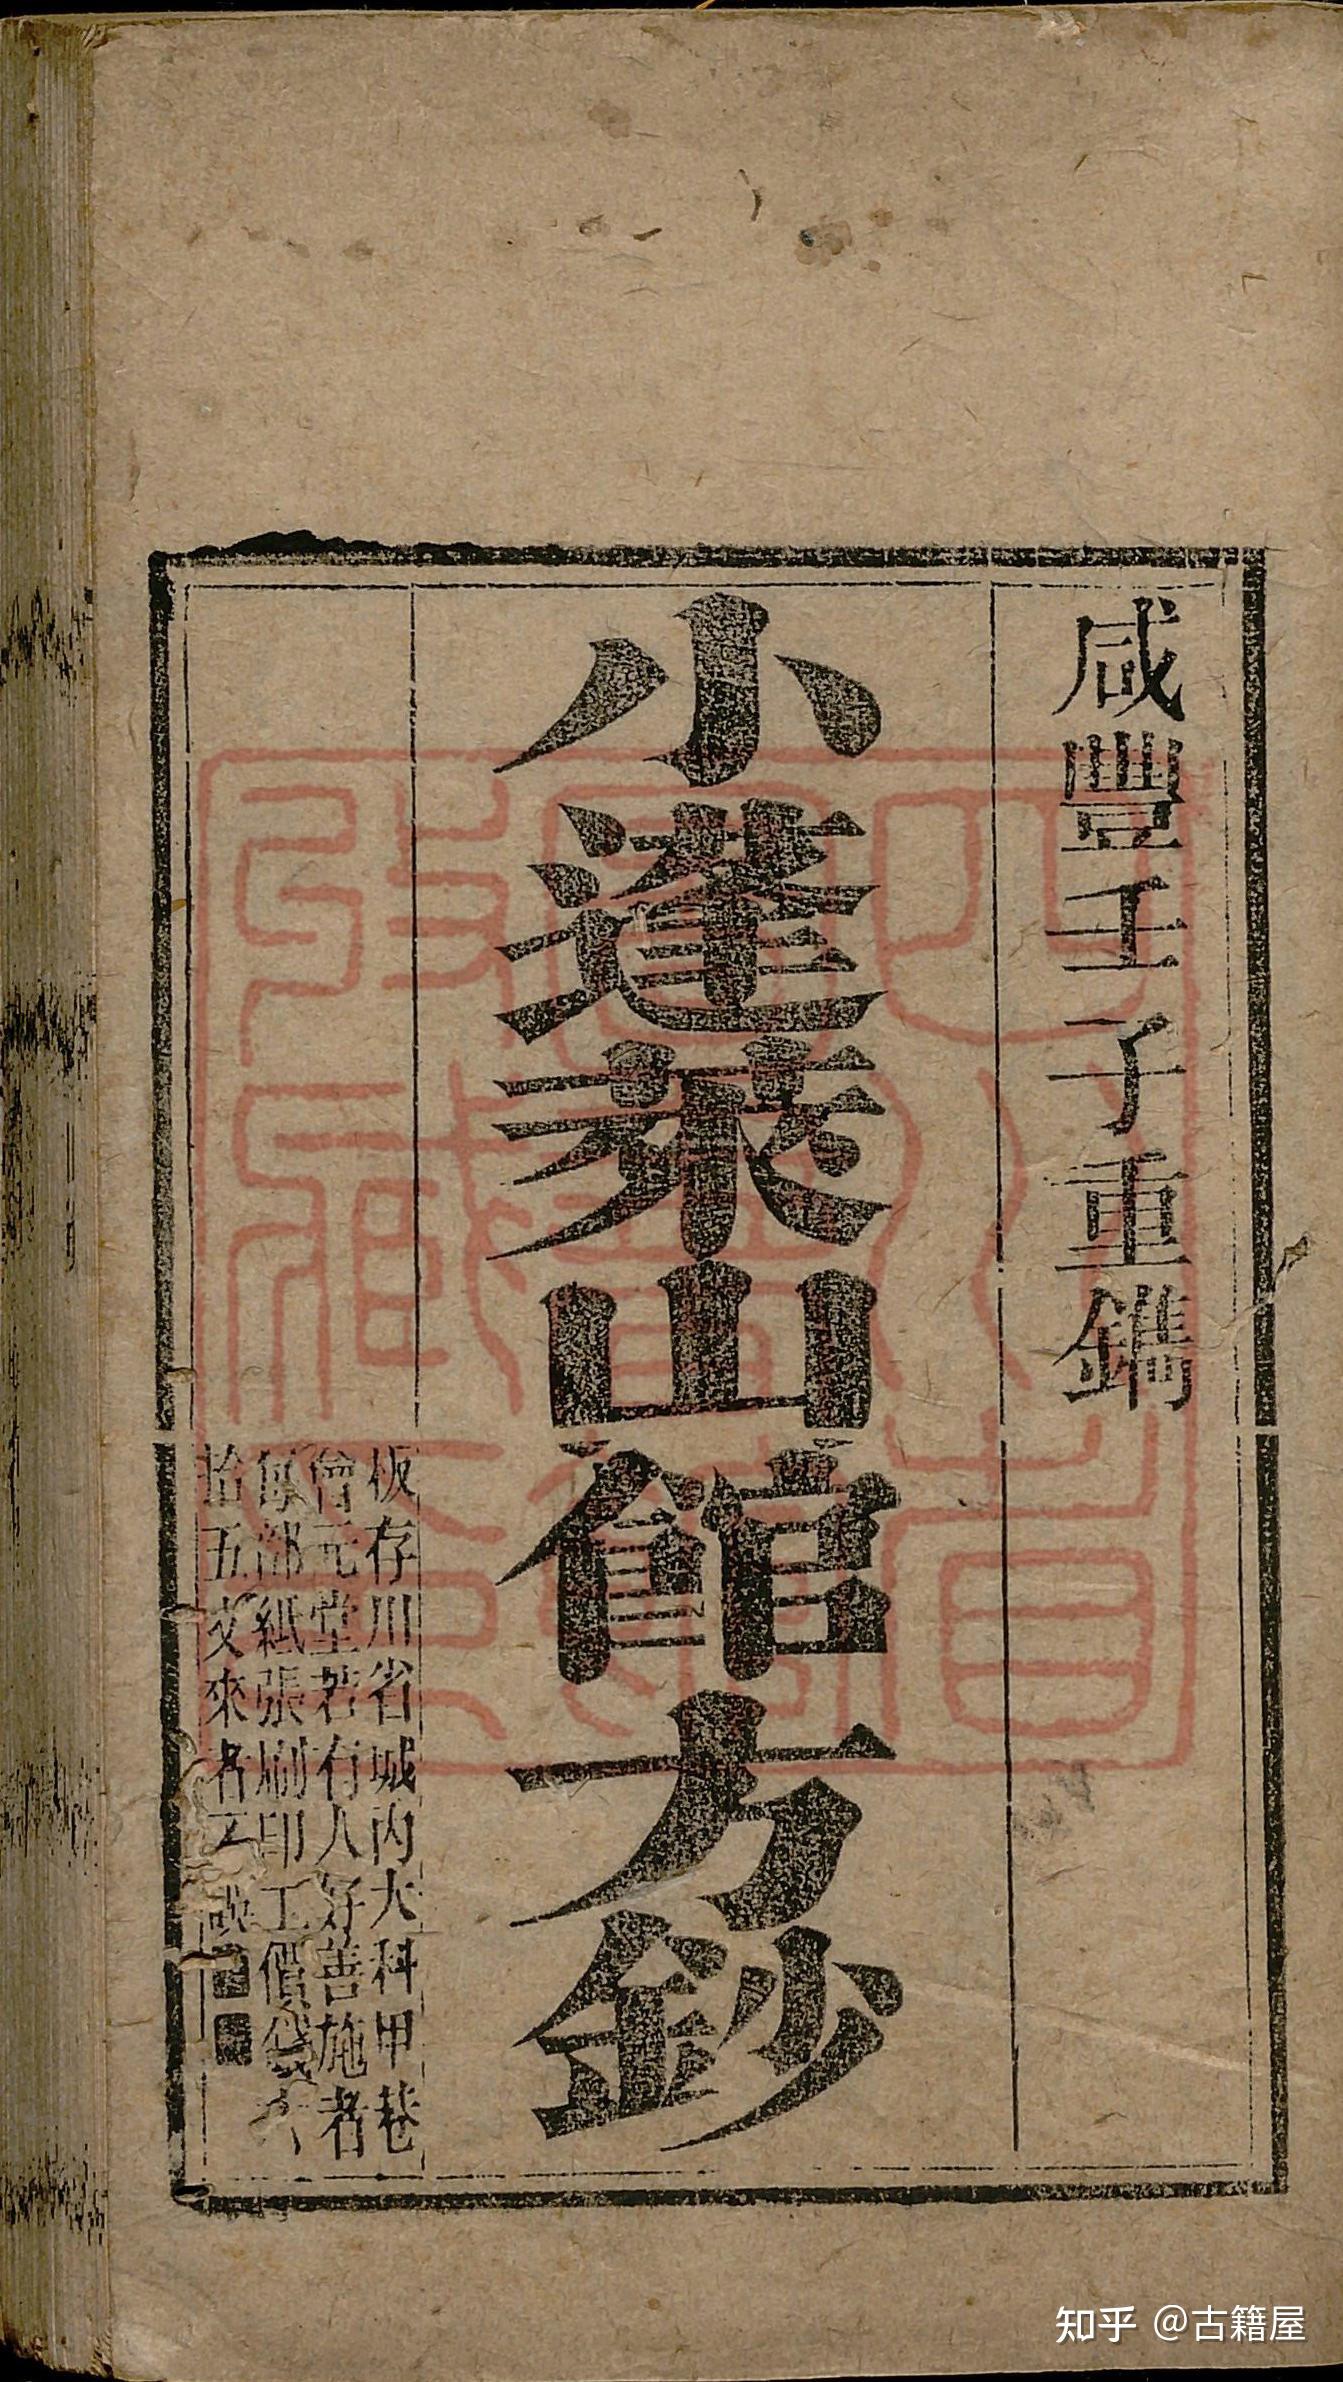 咸豐壬子重鐫
小蓬萊山館方鈔
板存川省城內大科甲巷
會元堂若有人好善施者
每部紙張刷印工價錢
拾五文來者不誤
知乎 @古籍屋